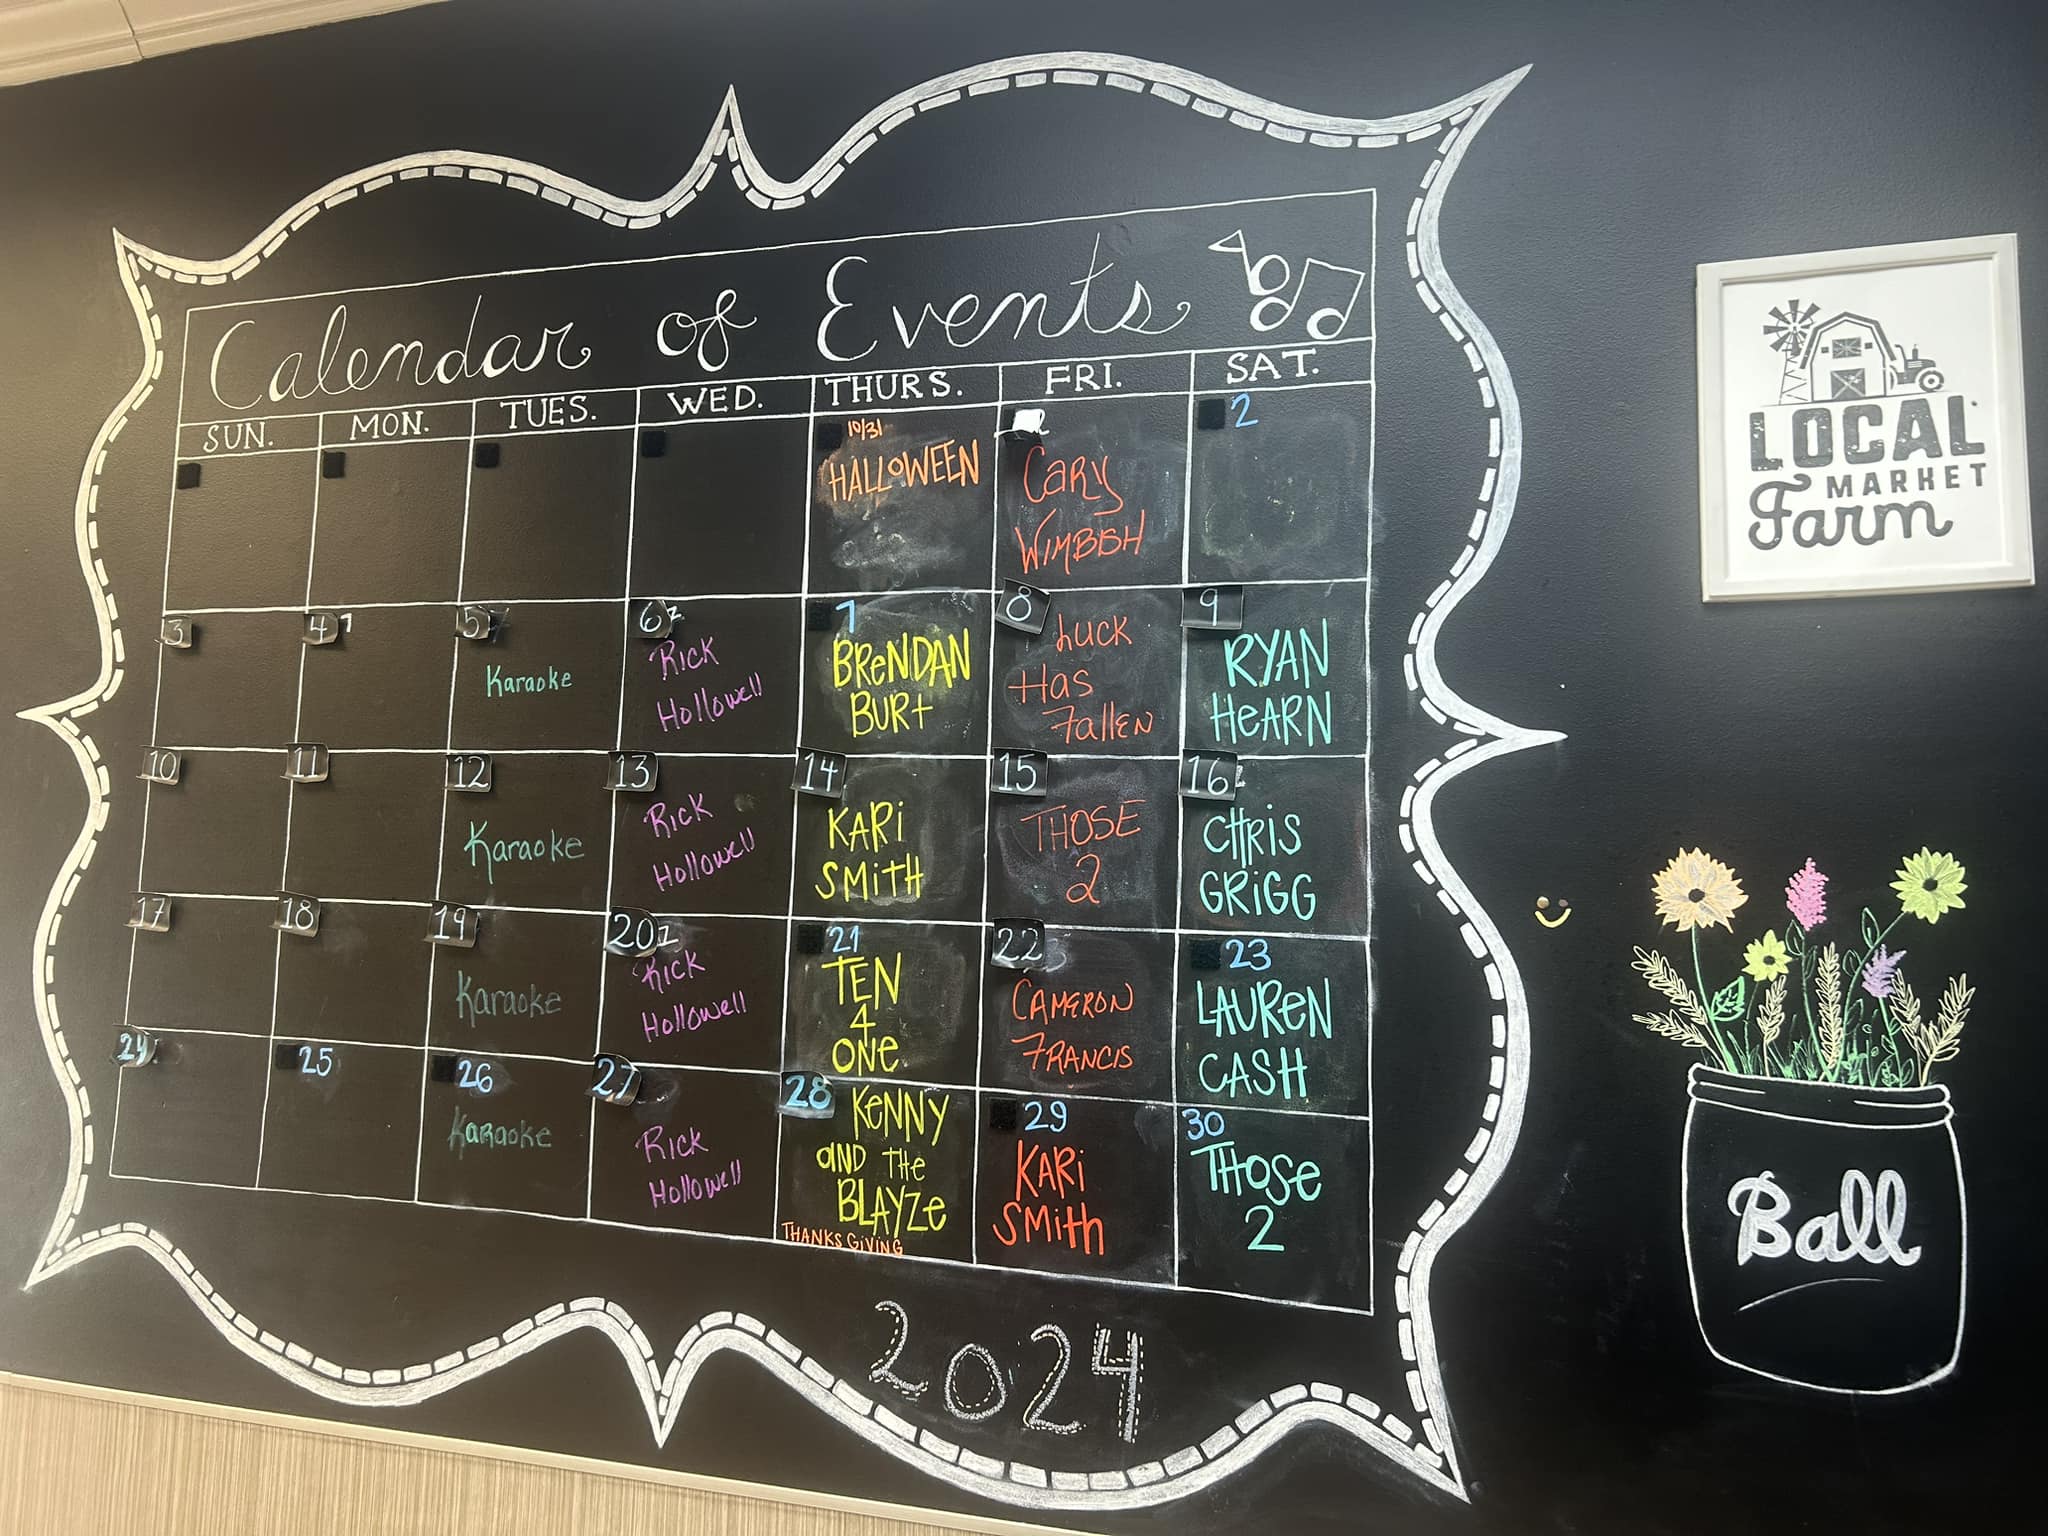 Calendar of Events
SUN. MON. TUES. WED. THURS. FRI. SAT.
10/31
HALLOWEEN
Cary
Wimbish
2
3
4
5
Karaoke
6
Rick
Hollowell
7
BReNDAN
BURt
8
Luck
Has
Fallen
9
RYAN
HeARN
10
11
12
Karaoke
13
Rick
Hollowell
14
KARi
SMitH
15
THOSE
2
16
CHRiS
GRiGG
17
18
19
Karaoke
20
Rick
Hollowell
21
TEN
4
ONe
22
CAMERON
FRANCIS
23
LAUReN
CASH
24
25
26
Karaoke
27
Rick
Hollowell
28
KeNNY
AND THe
BLAYZe
THANKSGIVING
29
KARi
SMith
30
THOSe
2
2024
LOCAL
MARKET
Farm
Ball